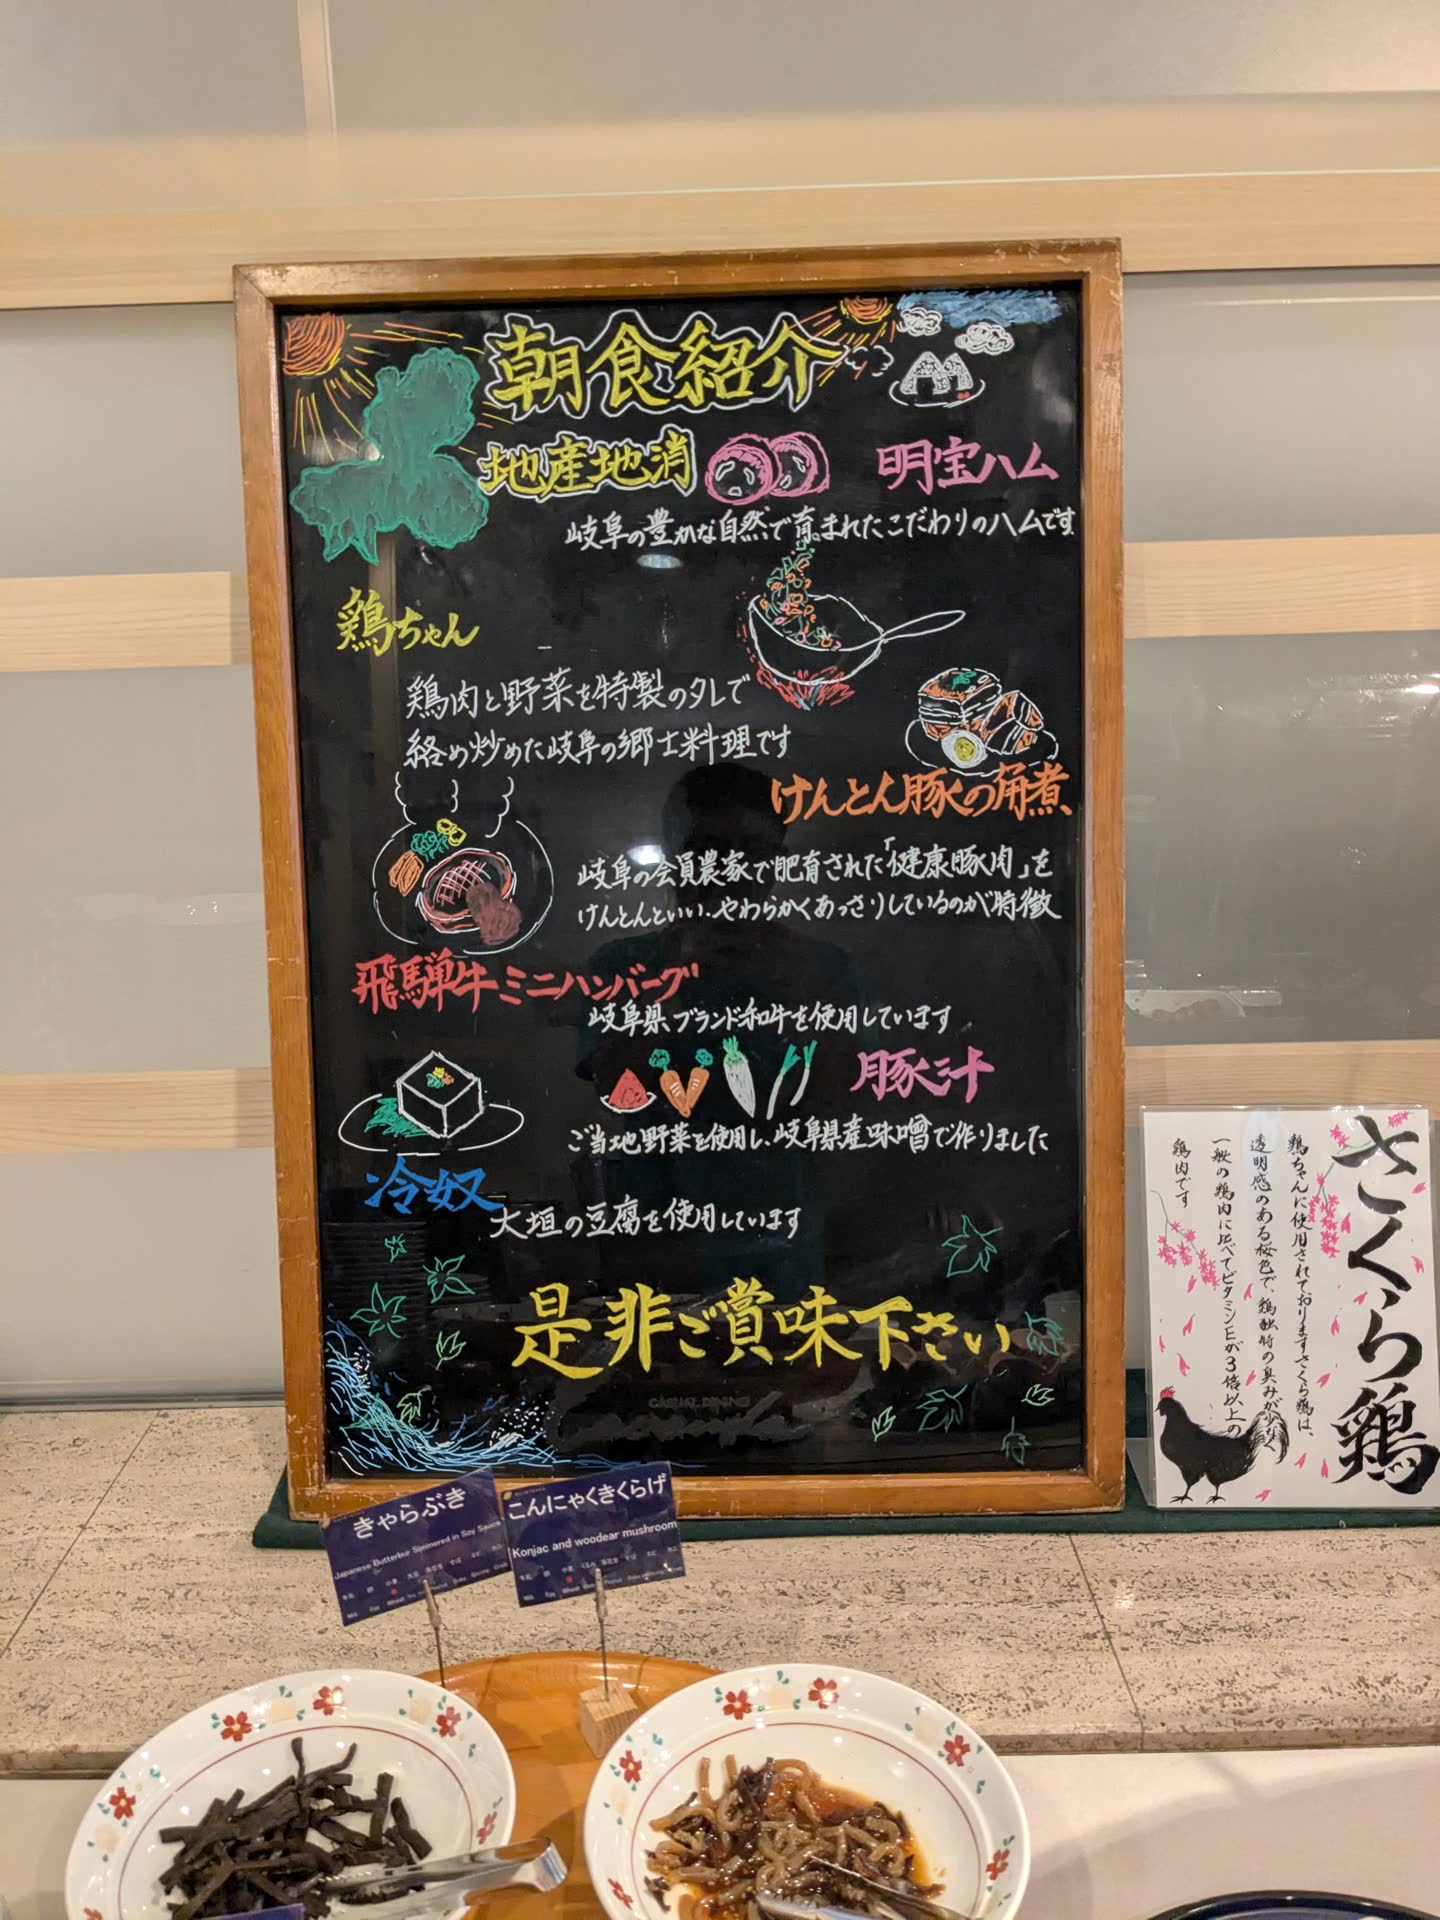 朝食紹介
地産地消
明宝ハム
岐阜の豊かな自然で育まれたこだわりのハムです
鶏ちゃん
鶏肉と野菜を特製のタレで
絡め炒めた岐阜の郷土料理です
けんとん豚の角煮
岐阜の会員農家で肥育された「健康豚肉」を
けんとんといい、やわらかくあっさりしているのが特徴
飛騨牛ミニハンバーグ
岐阜県、ブランド和牛を使用しています
豚汁
ご当地野菜を使用し、岐阜県産味噌で作りました
冷奴
大垣の豆腐を使用しています
是非ご賞味下さい
CASUAL DINING
さくら鶏
鶏ちゃんに使用されておりますさくら鶏は、
透明感のある桜色で、鶏独特の臭みが少なく
一般の鶏肉に比べてビタミンEが3倍以上の
鶏肉です
きゃらぶき
Japanese Butterbur Simmered in Soy Sauce
こんにゃくきくらげ
Konjac and woodear mushroom